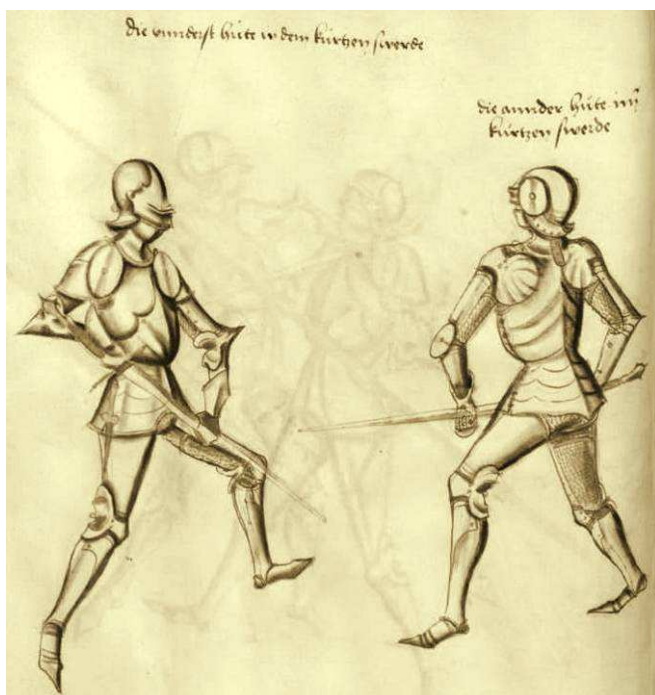 die vnnderst hüte in dem kürtzen swerde
die annder hüte im
kürtzen swerde